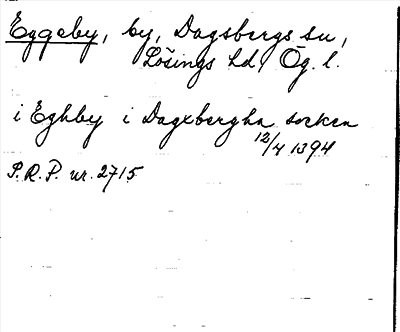 Eggeby, by, Dagsbergs sn,
Lösings hd, Ög. l.
i Eghby i Dagxbergha socken
12/4 1394
S.R.P. nr. 2715